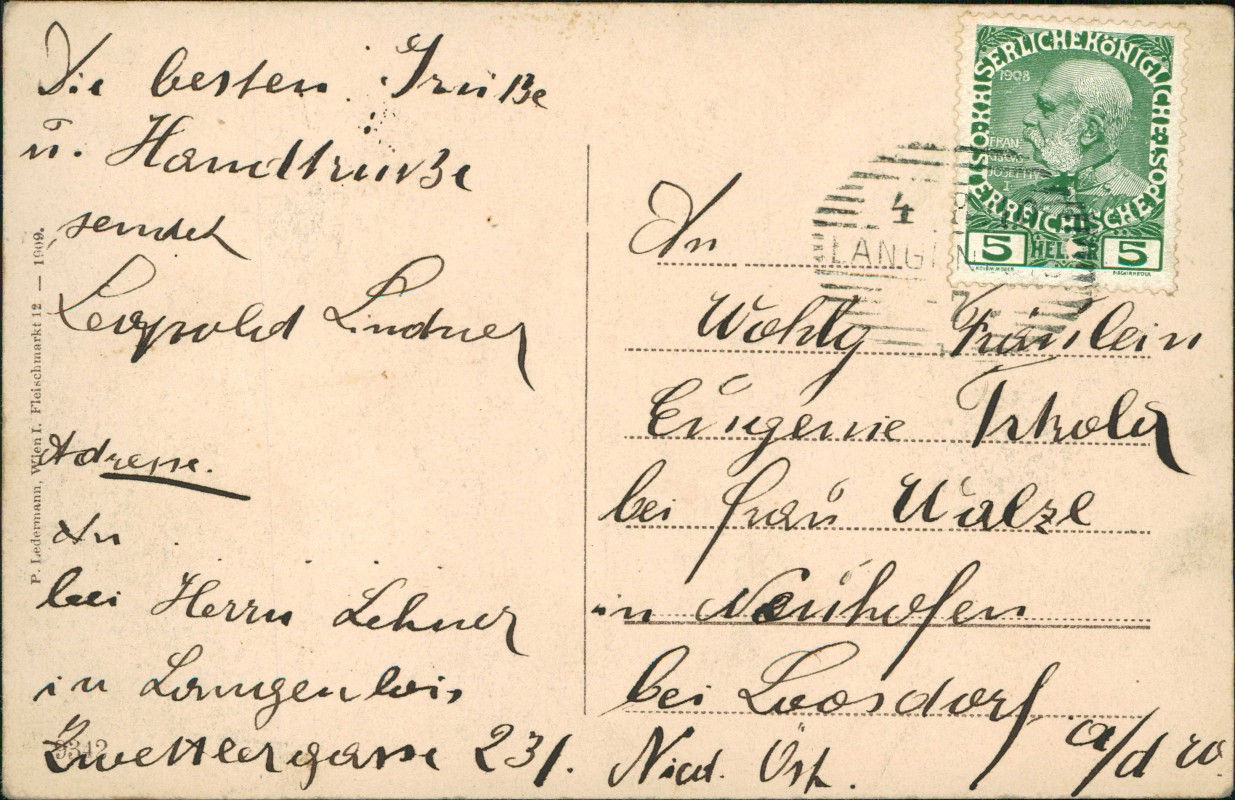 Die besten Grüße
u. Handküsse
sendet
Leopold Lindner
Adresse.
An
bei Herrn Lehner
in Langenlois
Zwettlergasse 231.
9312
P. Ledermann, Wien I. Fleischmarkt 12 — 1909.
KAISERLICHE KÖNIGLICHE ÖSTERREICHISCHE POST
1908
FRAN
CISCVS
JOSEPHVS
I
5 HELLER 5
4
LANG
7
An
Wohlg Fräulein
Eugenie
bei Frau Walzl
in Neuhofen
bei Loosdorf a/d W.
Nied. Öst.